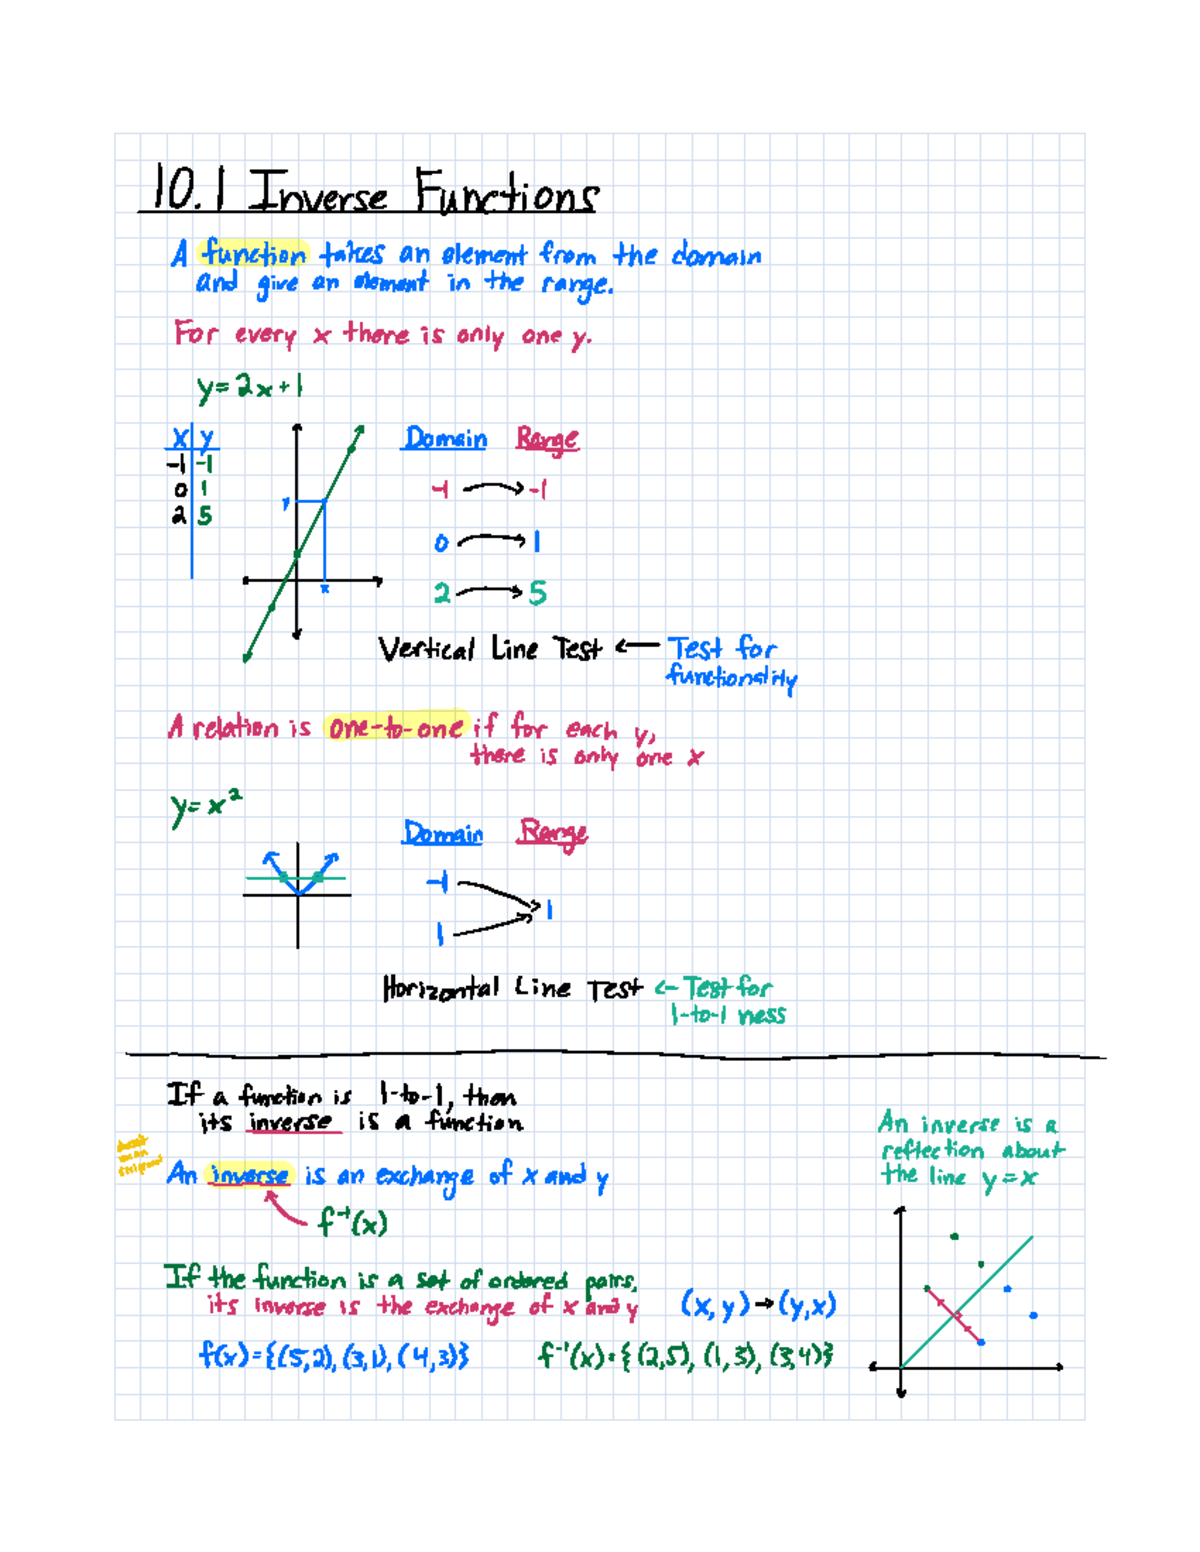 10.1 Inverse Functions
A function takes an element from the domain
and give an element in the range.
For every x there is only one y.
y = 2x + 1
x y
-1 -1
0 1
2 5
y
x
Domain Range
-1 → -1
0 → 1
2 → 5
Vertical Line Test ← Test for
functionality
A relation is one-to-one if for each y,
there is only one x
y = x²
Domain Range
-1
1
1
Horizontal Line Test ← Test for
1-to-1 ness
If a function is 1-to-1, then
its inverse is a function
An inverse is an exchange of x and y
f⁻¹(x)
If the function is a set of ordered pairs,
its inverse is the exchange of x and y
(x, y) → (y, x)
f(x) = {(5,2), (3,1), (4,3)}
f⁻¹(x) = {(2,5), (1,3), (3,4)}
An inverse is a
reflection about
the line y = x